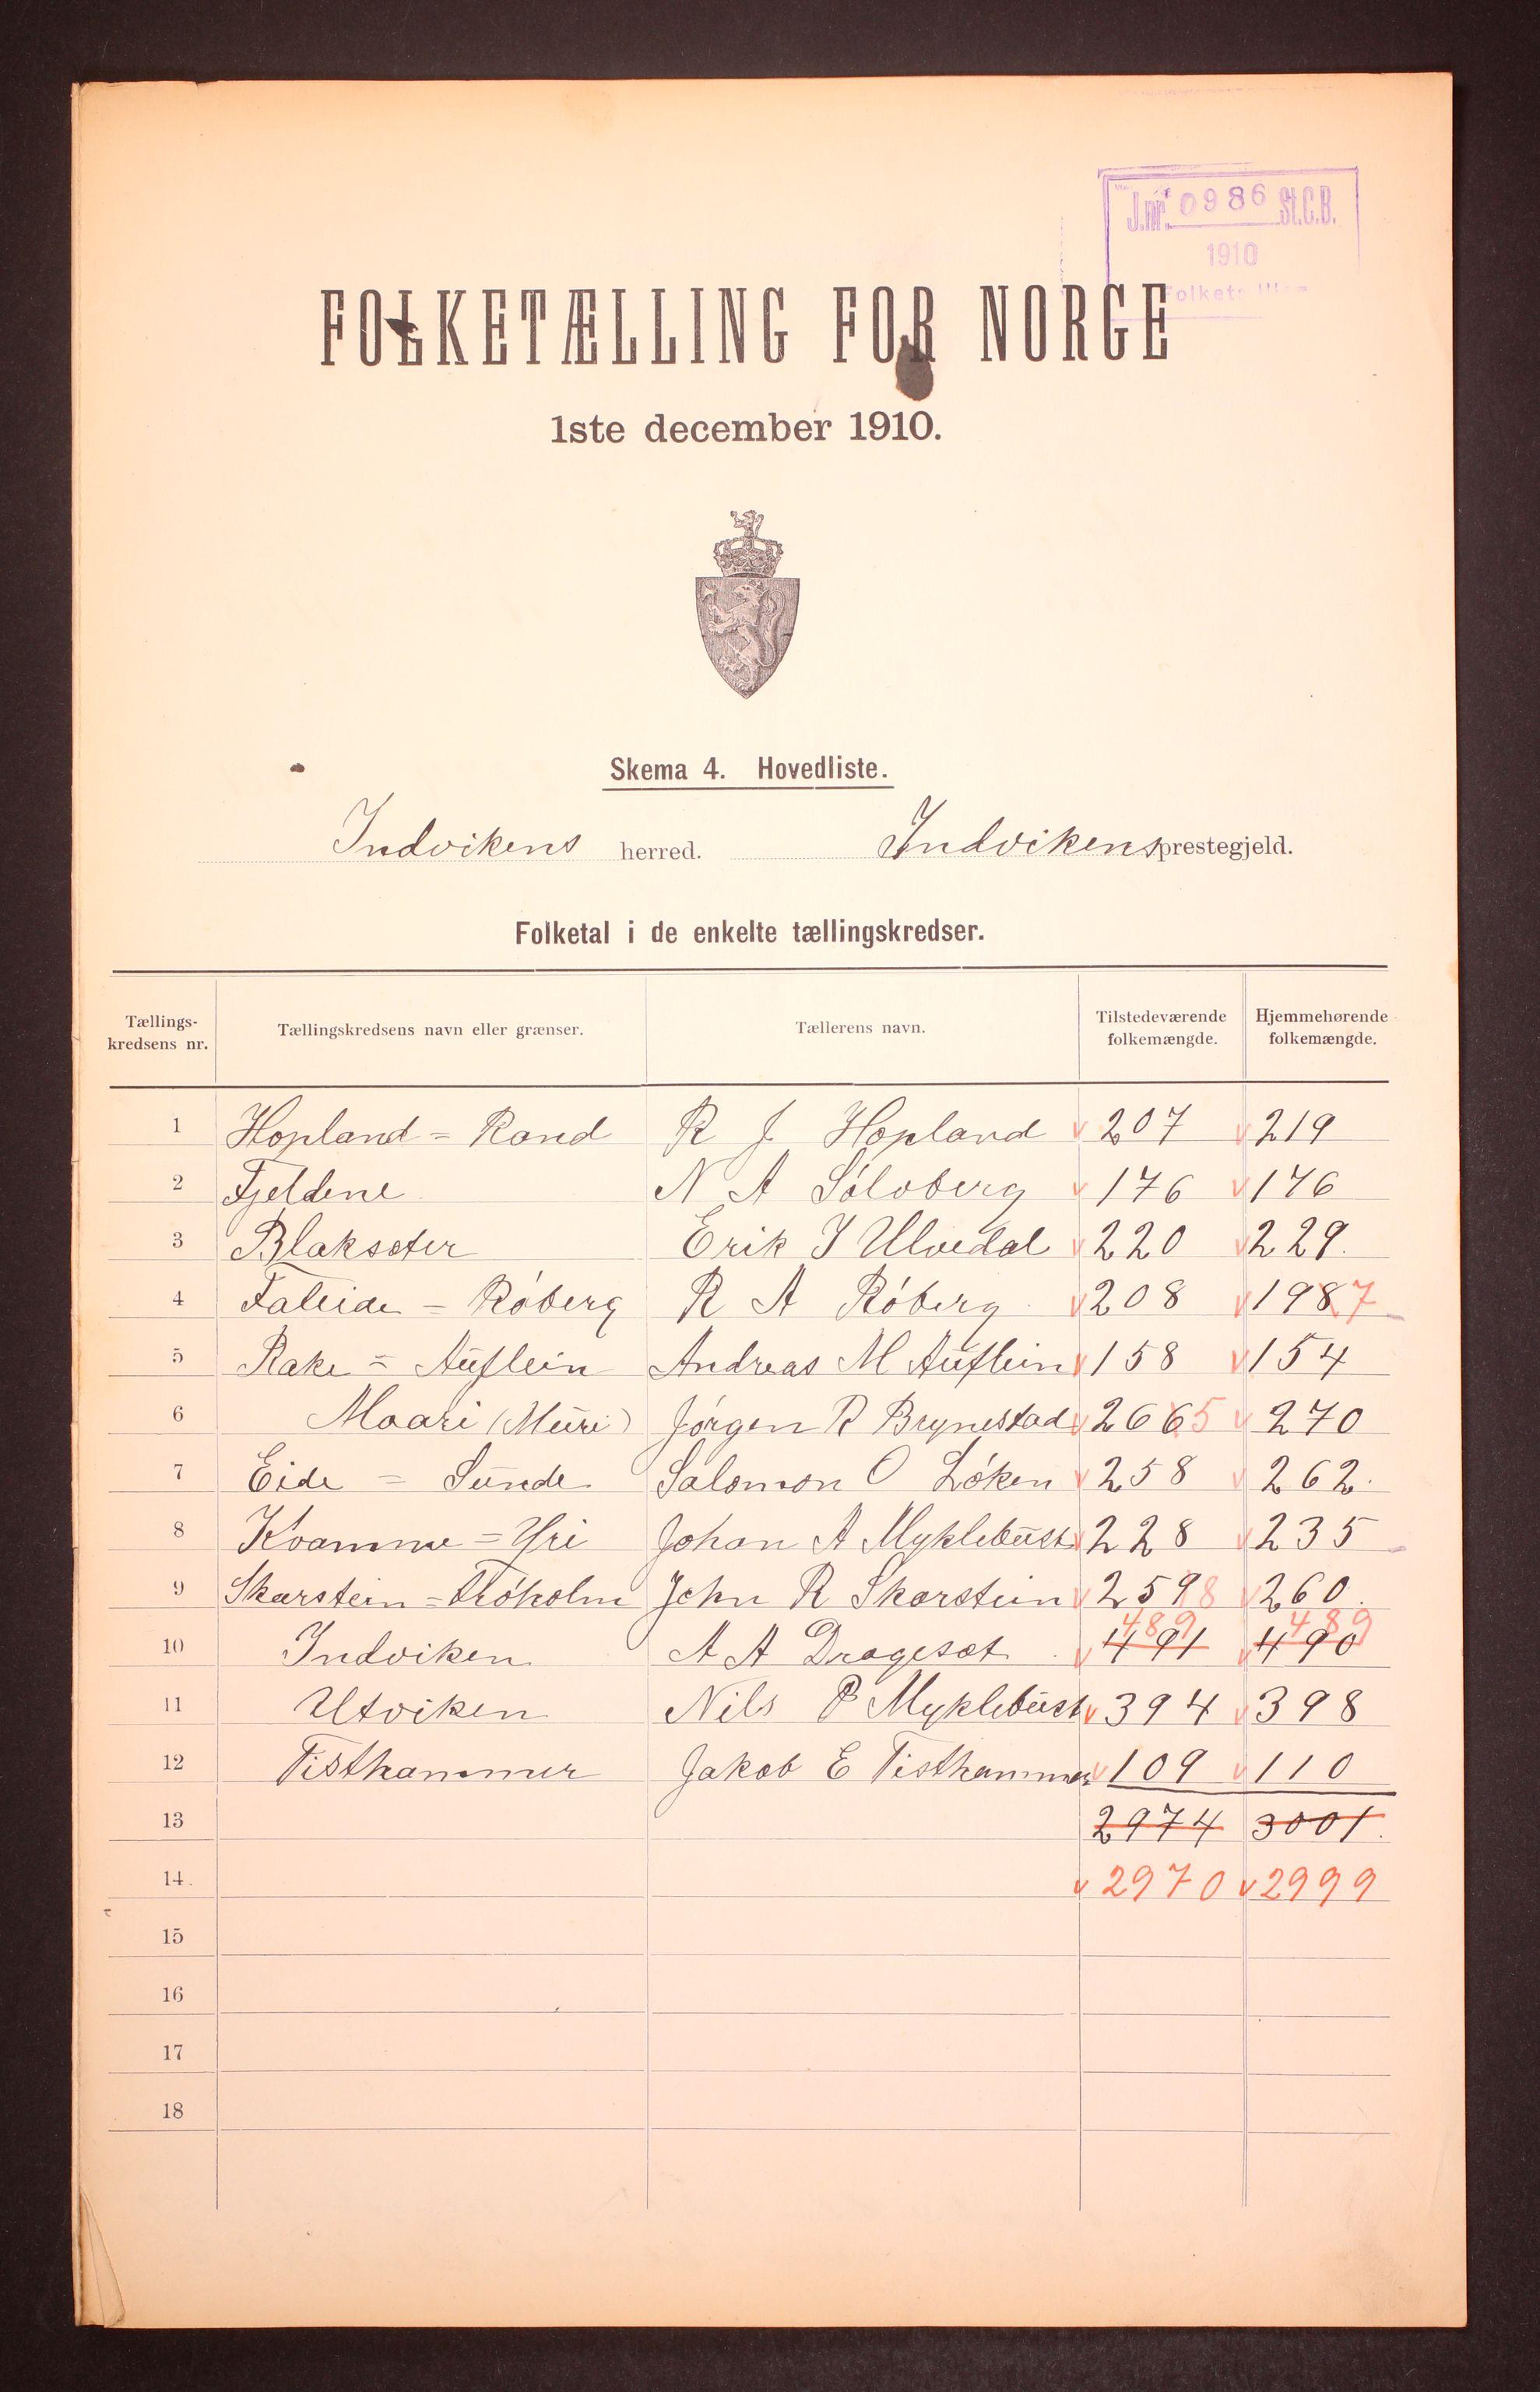 J.nr. 0986 St.C.B.
1910
FOLKETÆLLING FOR NORGE
1ste december 1910.
Skema 4. Hovedliste.
Indvikens herred. Indvikens prestegjeld.
Folketal i de enkelte tællingskredser.
Tællings-kredsens nr. Tællingskredsens navn eller grænser. Tællerens navn. Tilstedeværende folkemængde. Hjemmehørende folkemængde.
1 Hopland = Rand R J Hopland v 207 v 219
2 Fjeldene N A Sølvberg v 176 v 176
3 Blaksæter Erik J Ulvedal v 220 v 229.
4 Faleide = Røberg R A Røberg v 208 v 198 7
5 Rake = Aüflein Andreas M Aüflein v 158 v 154
6 Maari (Müri) Jørgen R Brynestad v 266 5 v 270
7 Eide = Sünde Salomon O Løken v 258 v 262.
8 Kvamme = Yri Johan A Myklebüst v 228 v 235
9 Skarstein = John R Skarstein v 259 8 v 260.
489 489
10 Indviken A A Drageset v 491 v 490
11 Utviken Nils P Myklebüst v 394 v 398
12 Tisthammer Jakob E Tisthammer v 109 v 110
13 2974 3001.
14. v 2970 v 2999
15
16
17
18